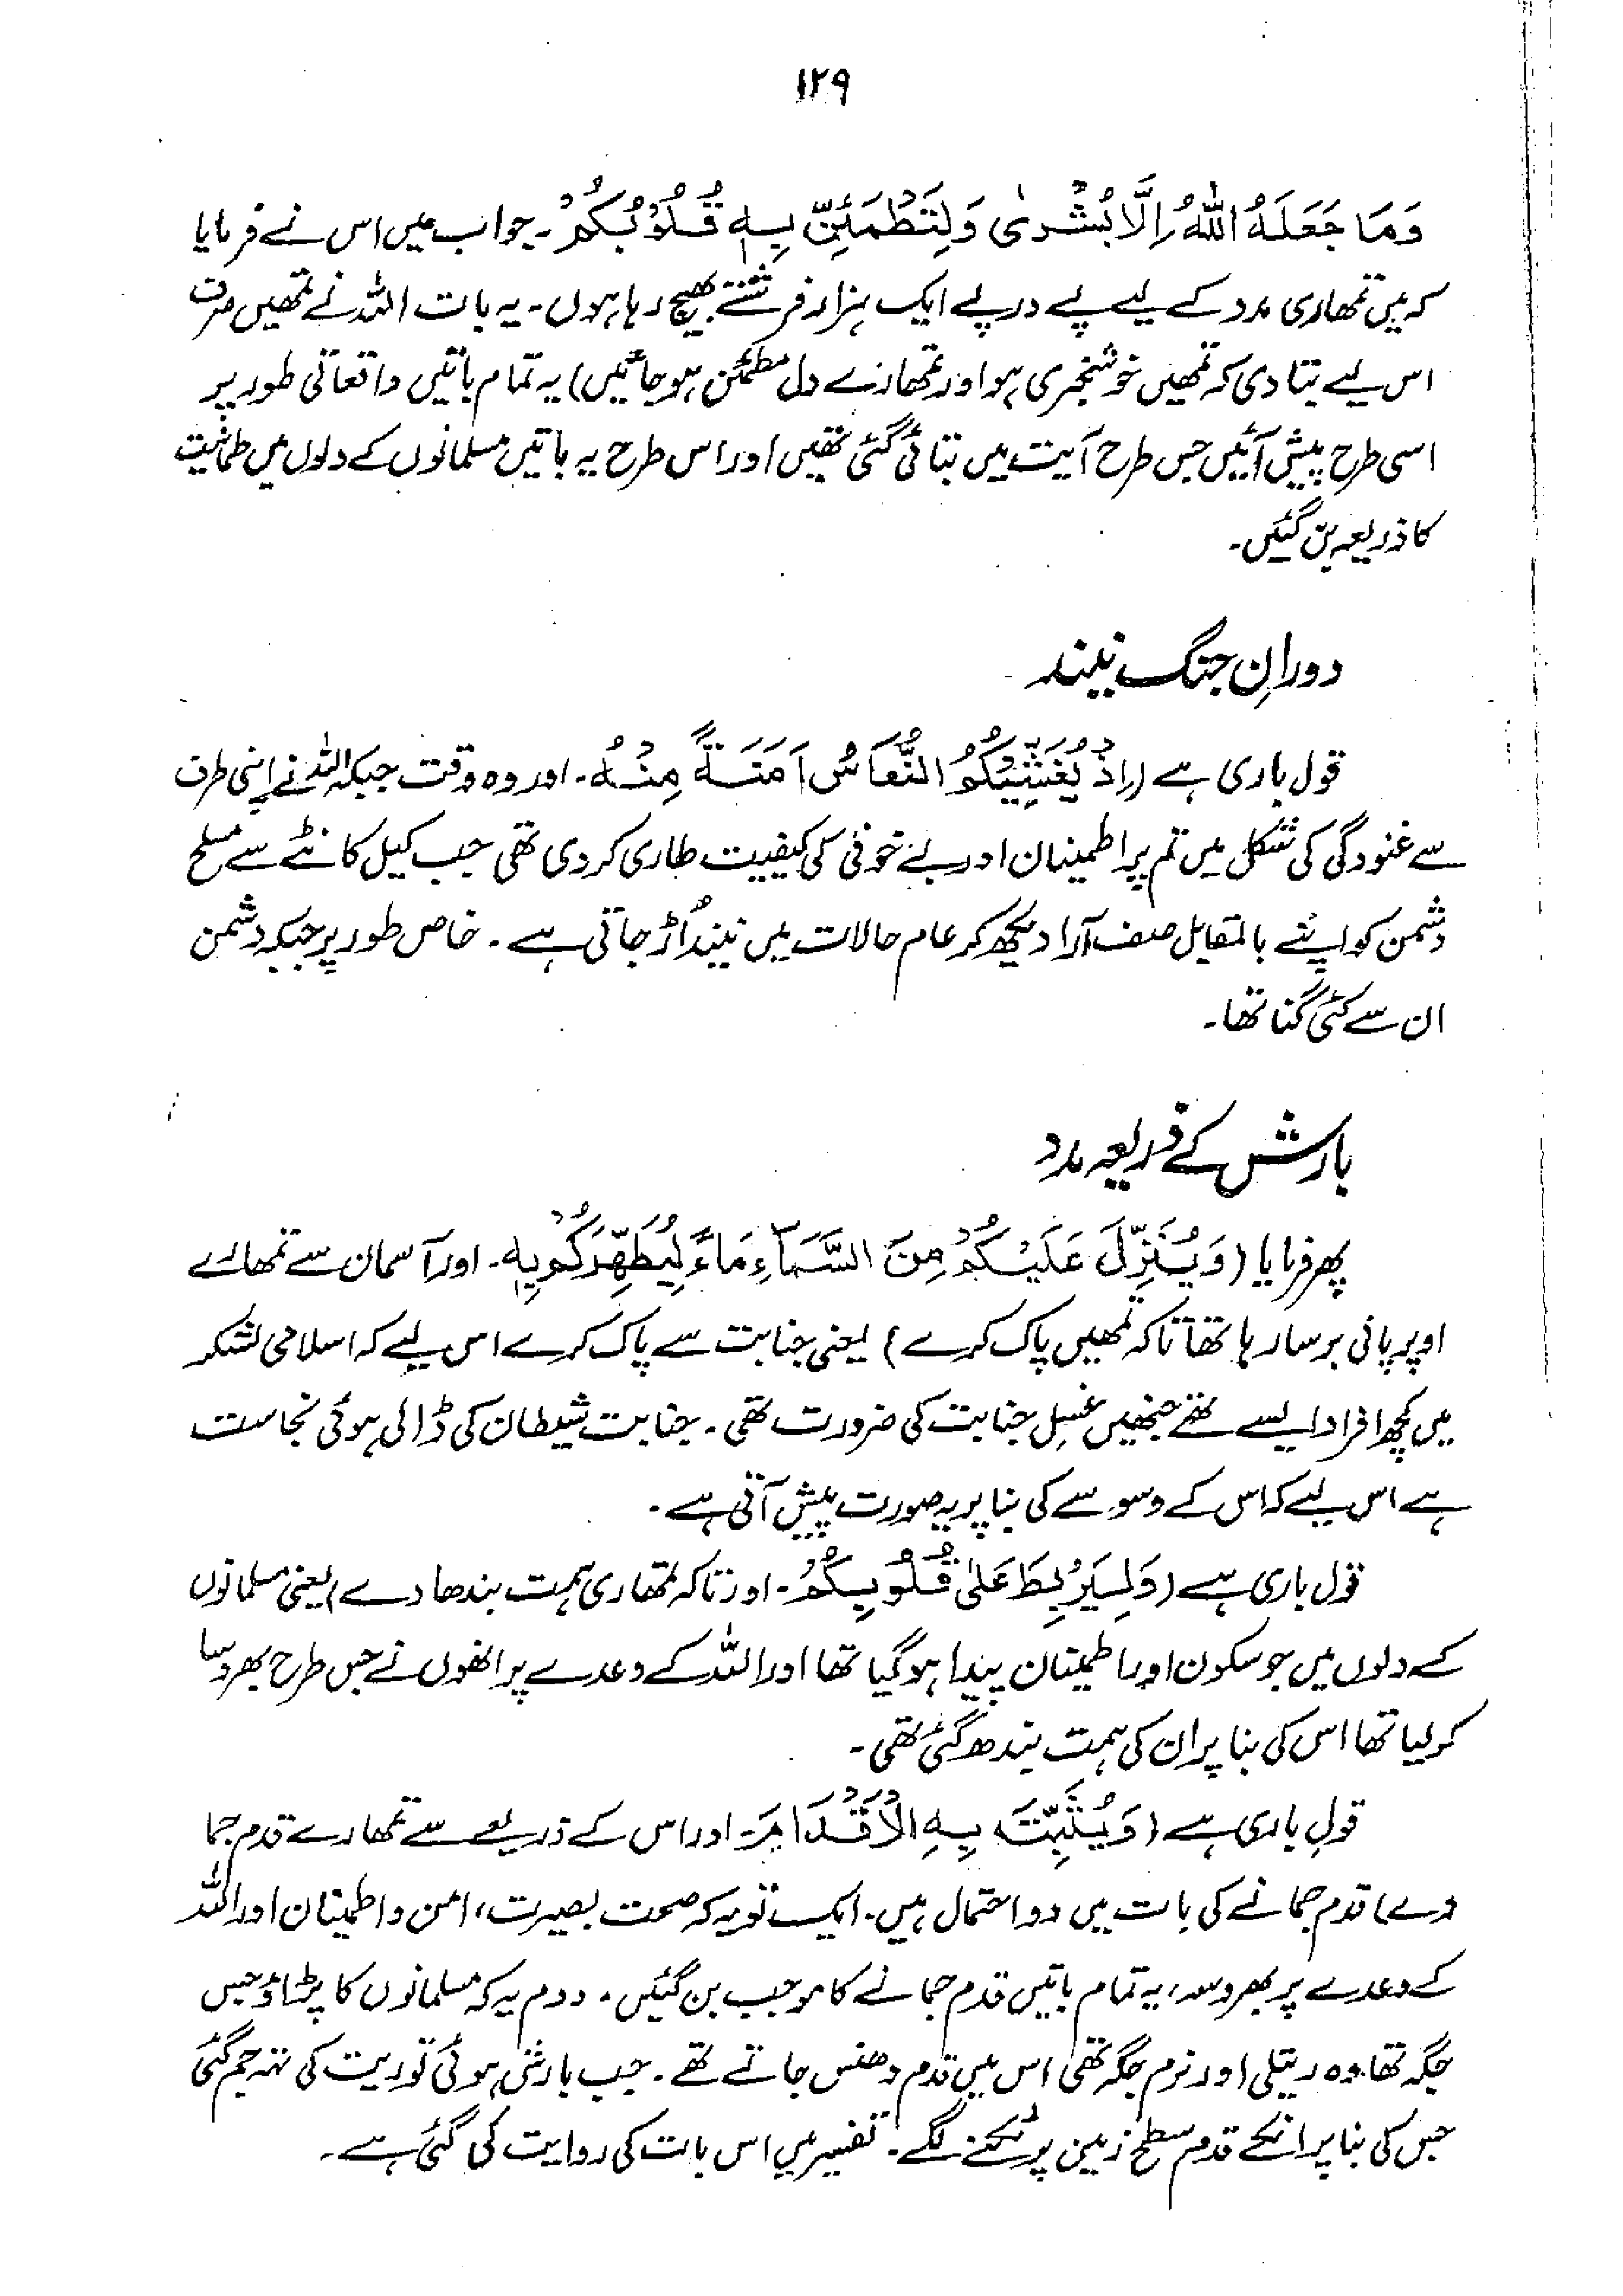 ۱۲۹
وَمَا جَعَلَهُ اللّٰهُ اِلَّا بُشْرىٰ وَلِتَطْمَئِنَّ بِهٖ قُلُوْبُكُمْ۔ جواب میں اس نے فرمایا
کہ میں تمھاری مدد کے لیے پے درپے ایک ہزار فرشتے بھیج رہا ہوں۔ یہ بات اللہ نے تمھیں صرف
اس لیے بتا دی کہ تمھیں خوشخبری ہو اور تمھارے دل مطمئن ہو جائیں) یہ تمام باتیں واقعاتی طور پر
اسی طرح پیش آئیں جس طرح آیت میں بتائی گئی تھیں اور اس طرح یہ باتیں مسلمانوں کے دلوں میں طمانیت
کا ذریعہ بن گئیں۔
دورانِ جنگ نیند
قول باری ہے (اِذْ يُغَشِّيْكُمُ النُّعَاسُ اَمَنَةً مِنْهُ۔ اور وہ وقت جبکہ اللہ نے اپنی طرف
سے غنودگی کی شکل میں تم پر اطمینان اور بے خوفی کی کیفیت طاری کر دی تھی جب کیل کانٹے سے مسلح
دشمن کو اپنے بالمقابل صف آرا دیکھ کر عام حالات میں نیند اُڑ جاتی ہے۔ خاص طور پر جبکہ دشمن
ان سے کئی گنا تھا۔
بارش کے ذریعہ مدد
پھر فرمایا (وَيُنَزِّلَ عَلَيْكُمْ مِنَ السَّمَآءِ مَاءً لِيُطَهِّرَكُمْ بِهٖ۔ اور آسمان سے تمھارے
اوپر پانی برسا رہا تھا تاکہ تمھیں پاک کرے) یعنی جنابت سے پاک کرے اس لیے کہ اسلامی لشکر
میں کچھ افراد ایسے تھے جنھیں غسلِ جنابت کی ضرورت تھی۔ جنابت شیطان کی ڈالی ہوئی نجاست
ہے اس لیے کہ اس کے وسوسے کی بنا پر یہ صورت پیش آتی ہے۔
قول باری ہے (وَلِيَرْبِطَ عَلىٰ قُلُوْبِكُمْ۔ اور تاکہ تمھاری ہمت بندھا دے) یعنی مسلمانوں
کے دلوں میں جو سکون اور اطمینان پیدا ہو گیا تھا اور اللہ کے وعدے پر انھوں نے جس طرح بھروسا
کر لیا تھا اس کی بنا پر ان کی ہمت بندھ گئی تھی۔
قولِ باری ہے (وَيُثَبِّتَ بِهِ الْاَقْدَامَ۔ اور اس کے ذریعے سے تمھارے قدم جما
دے) قدم جمانے کی بات میں دو احتمال ہیں۔ ایک تو یہ کہ صحت بصیرت، امن و اطمینان اور اللہ
کے وعدے پر بھروسہ، یہ تمام باتیں قدم جمانے کا موجب بن گئیں۔ دوم یہ کہ مسلمانوں کا پڑاؤ جس
جگہ تھا وہ ریتلی اور نرم جگہ تھی اس میں قدم دھنس جاتے تھے۔ جب بارش ہوئی تو ریت کی تہہ جم گئی
جس کی بنا پر انکے قدم سطح زمین پر ٹکنے لگے۔ تفسیر میں اس بات کی روایت کی گئی ہے۔